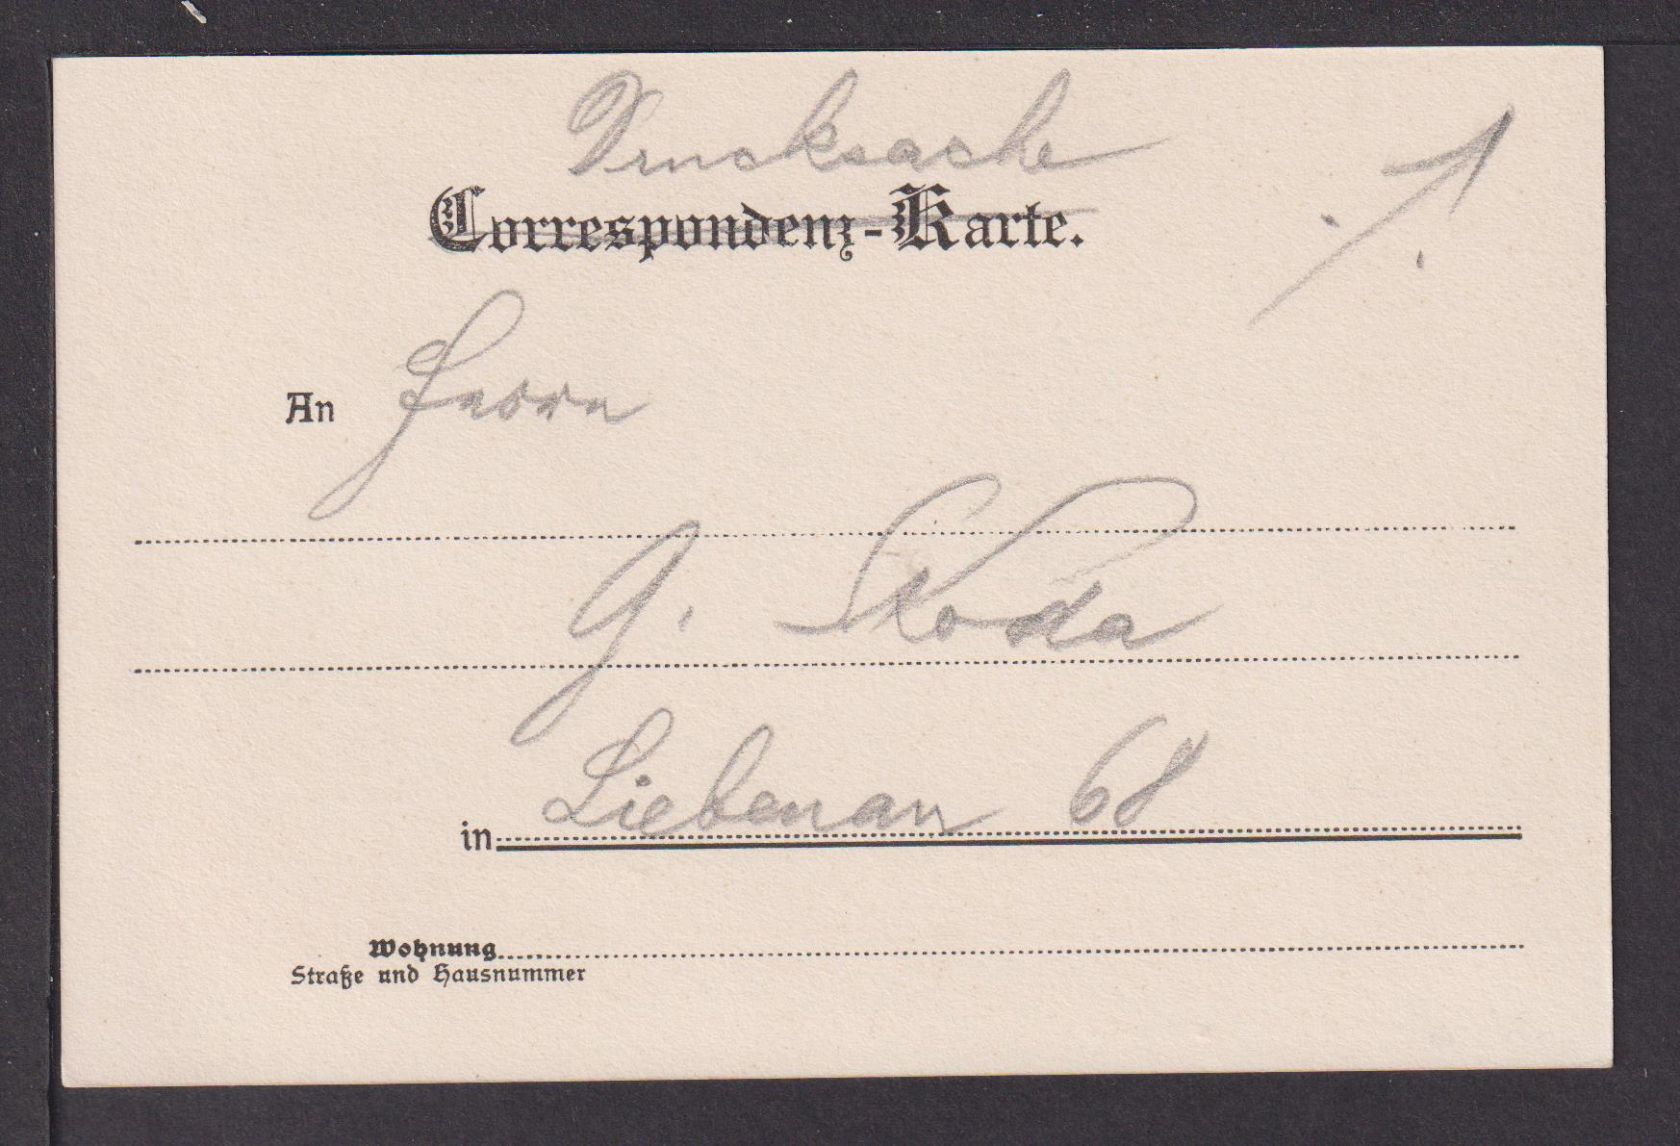 Drucksache
Correspondenz-Karte.
An Herrn
G. Skoda
in Liebenau 68
Wohnung
Straße und Hausnummer